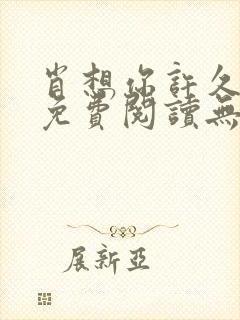 肖想你許久
免費閱讀無
展新亞